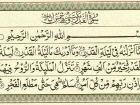 بِسْمِ اللَّهِ الرَّحْمَٰنِ الرَّحِيمِ
إِنَّا أَنزَلْنَاهُ فِي لَيْلَةِ الْقَدْرِ وَمَا أَدْرَاكَ مَا لَيْلَةُ
الْقَدْرِ لَيْلَةُ الْقَدْرِ خَيْرٌ مِّنْ أَلْفِ شَهْرٍ تَنَزَّلُ الْمَلَائِكَةُ وَالرُّوحُ فِيهَا
بِإِذْنِ رَبِّهِم مِّن كُلِّ أَمْرٍ سَلَامٌ هِيَ حَتَّىٰ مَطْلَعِ الْفَجْرِ